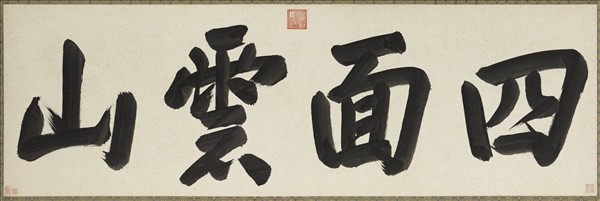 四面雲山